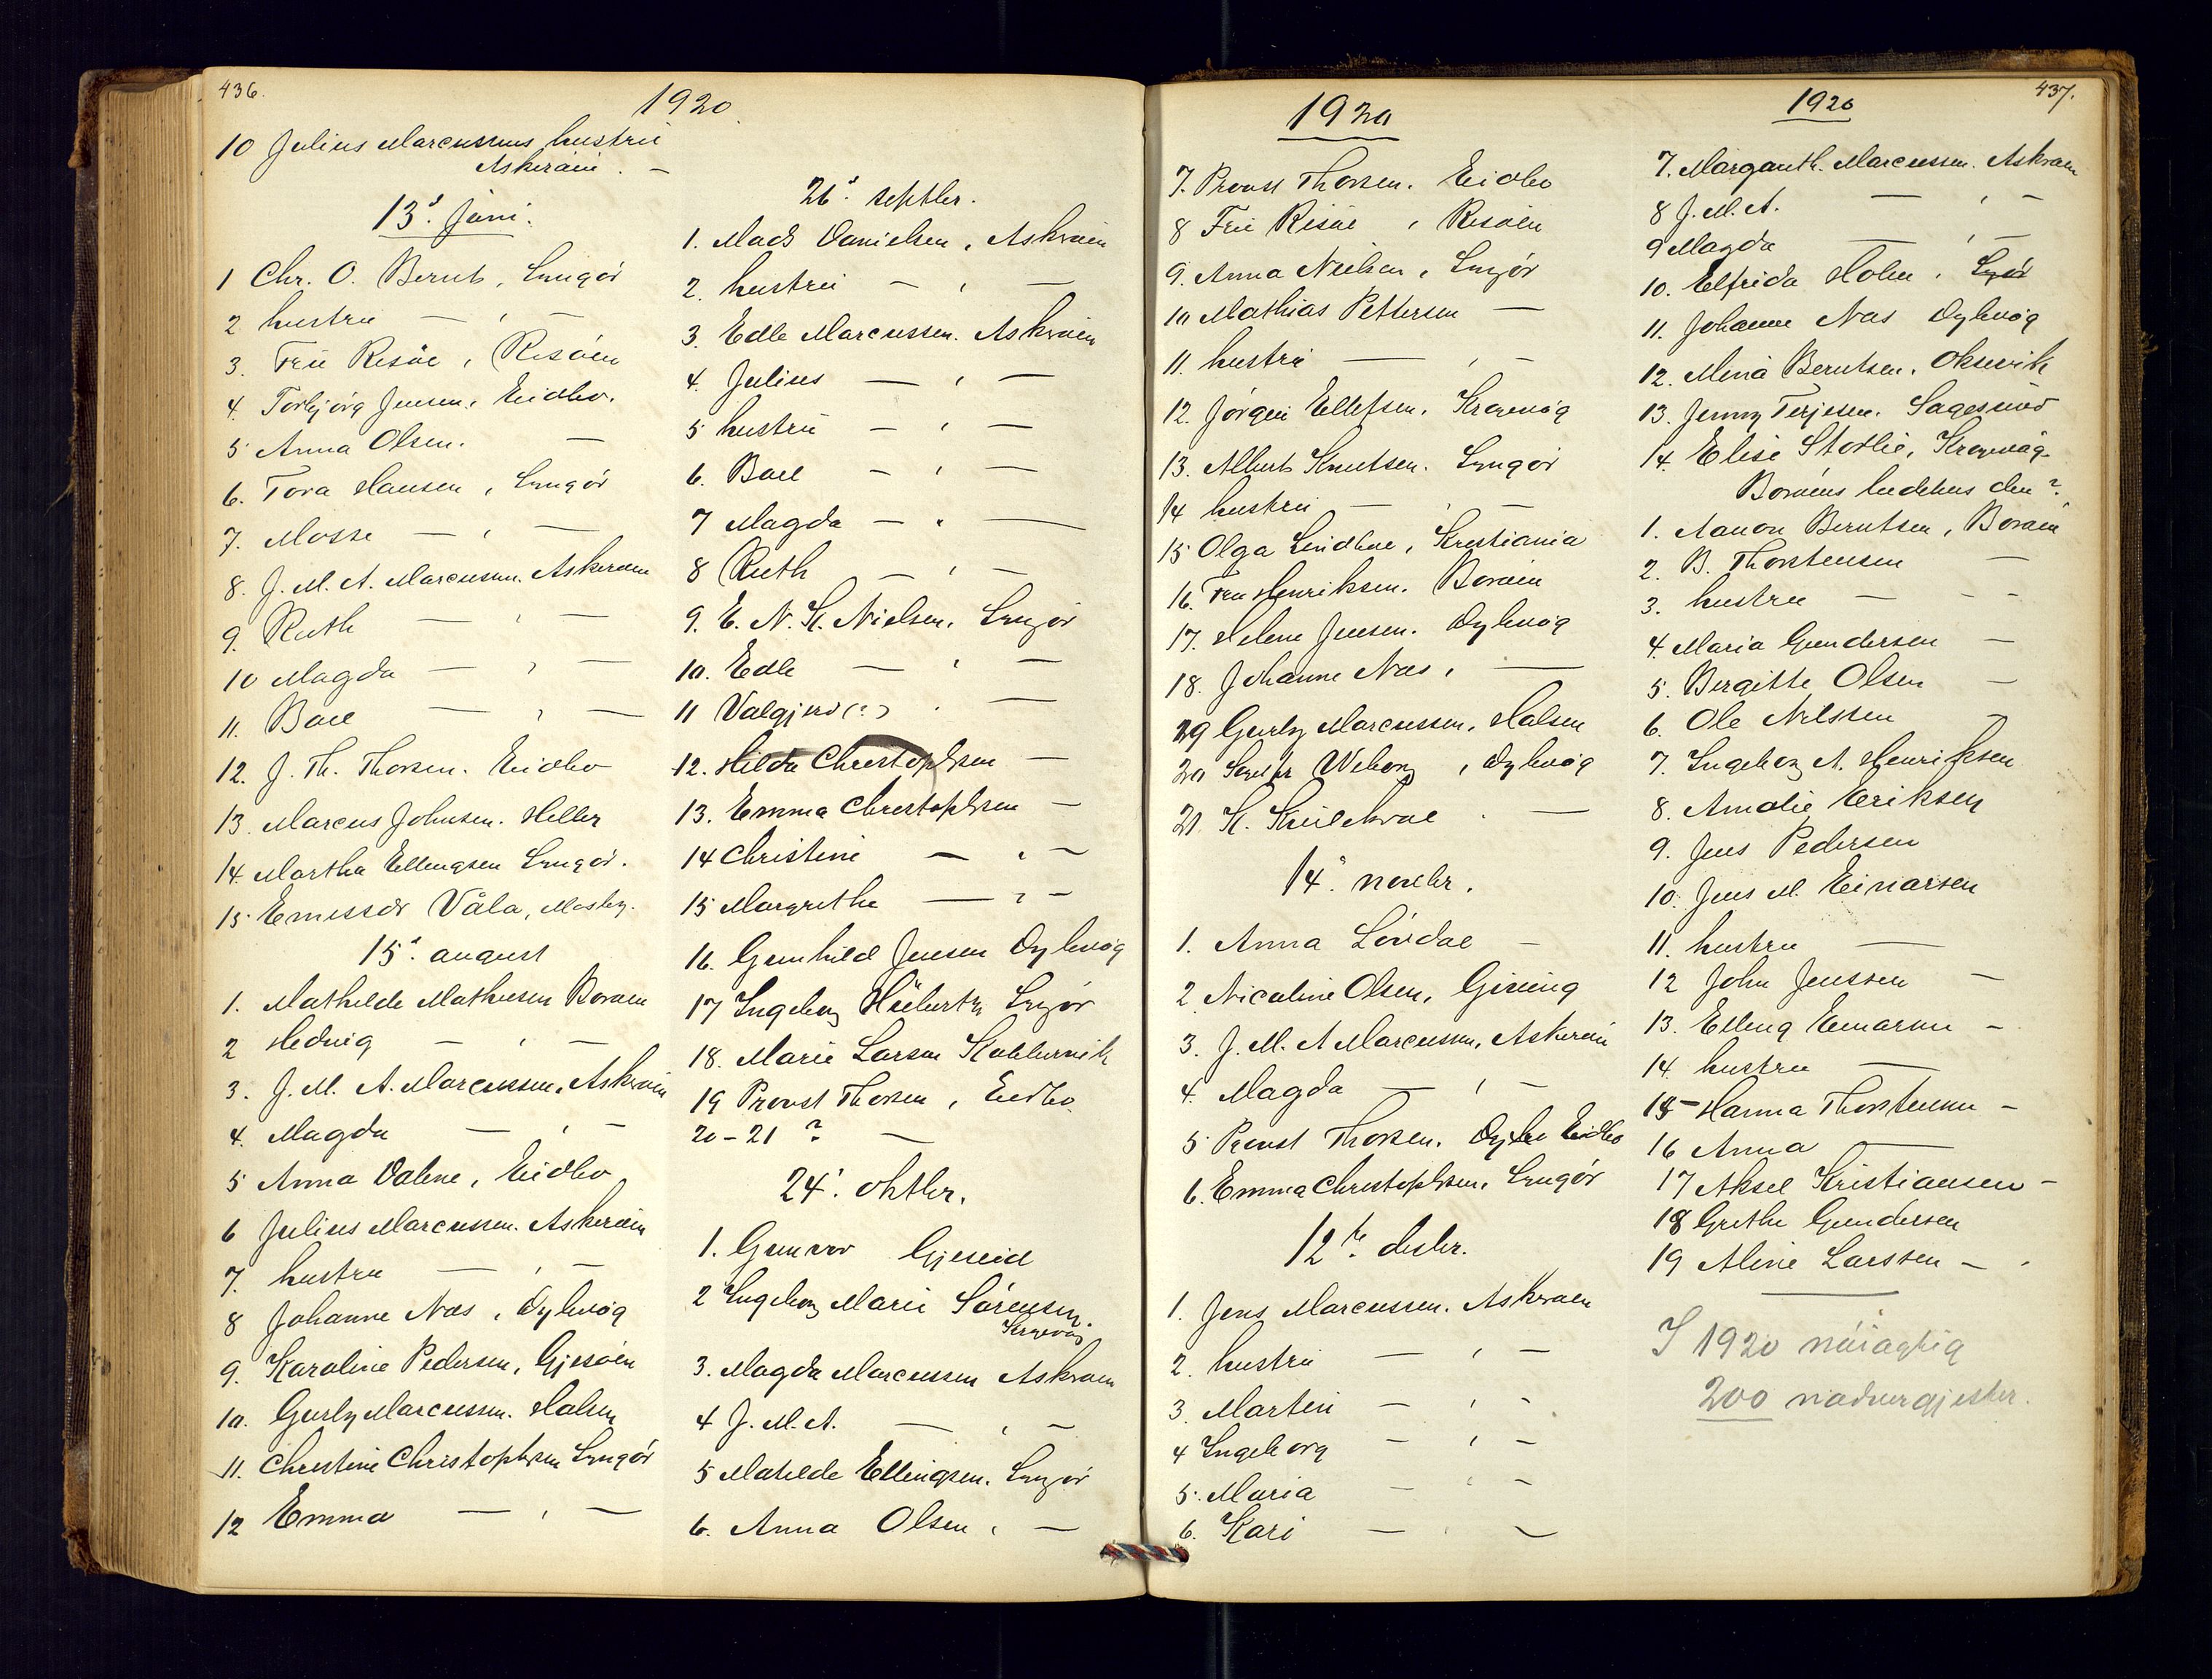 436.
1920
10 Julius Marcussens hustru
Askerøien. —
13'. juni.
1 Chr. O. Bernts, Lyngør
2 hustru — , —
3. Fru Risøe, Risøen
4. Torbjørg Jensen, Eidbo.
5 Anna Olsen. —
6. Tora Hansen, Lyngør
7. Mosse — , —
8. J. M. A. Marcussen. Askerøien
9. Ruth — , —
10 Magda — , —
11. Boel — , —
12. J. Th. Thorsen. Eidbo
13. Marcus Johnsen. Heller
14. Martha Ellingsen Lyngør.
15 Emissær Våla, Mosby.
15'. august
1. Mathilde Mathiesen Borøen
2 Hedvig — , —
3. J. M. A. Marcussen, Askerøien
4. Magda — , —
5 Anna Dalene, Eidbo
6 Julius Marcussen. Askerøien
7. hustru — , —
8 Johanne Næs, Dybvåg
9. Karoline Pedersen, Gjesøien
10. Gerly Marcussen. Holmen
11. Christine Christophersen Lyngør
12 Emma — , —
26'. septbr.
1. Mads Danielsen, Askerøien
2. hustru — , —
3. Edle Marcussen. Askerøien
4. Julius — , —
5 hustru — , —
6. Boel — , —
7 Magda — , —
8 Ruth — , —
9. E. N. K. Nielsen, Lyngør
10. Edle — , —
11 Valgjerd (?) , —
12. Hilda Christophersen —
13. Emma Christophersen —
14 Christine — , —
15 Margrethe — , —
16. Gunhild Jensen Dybvåg
17 Ingeborg Hüberts Lyngør
18. Marie Larsen Kobbervik
19 Provst Thorsen, Eidbo
20-21 ? —
24'. oktbr.
1. Gunvor Gjeseid
2 Ingeborg Marie Sørensen,
Krogvåg
3. Magda Marcussen Askerøien
4 J. M. A. — , —
5 Matilde Ellingsen. Lyngør
6. Anna Olsen, —
1920
7. Provst Thorsen. Eidbo
8 Fru Risøe, Risøen
9. Anna Nielsen, Lyngør
10 Mathias Pettersen —
11. hustru — , —
12. Jørgen Ellefsen. Krogvåg
13. Albert Knutsen. Lyngør
14 hustru — , —
15 Olga Lindboe, Kristiania
16. Fru Henriksen. Borøen
17. Helene Jensen. Dybvåg
18. Johanne Næs, —
19 Gerly Marcussen, Holmen
20 Weborg, Dybvåg
21. K. —
14'. novbr.
1. Anna Løvdal —
2 Nicoline Olsen, Gjeving
3. J. M. A Marcussen, Askerøien
4. Magda — , —
5 Provst Thorsen. Eidbo
6. Emma Christophersen, Lyngør
12te. desbr.
1. Jens Marcussen. Askerøen
2. hustru — , —
3. Martin — , —
4 Ingeborg — , —
5. Maria — , —
6. Kari — , —
1920
437.
7. Margareth. Marcussen. Askerøen
8 J. M. A. — , —
9 Magda — , —
10. Elfrida Holm, Lyngør
11. Johanne Næs Dybvåg
12. Mina Berntsen. Oksevik
13. Jenny Terjesen. Sagesund
14. Elise Storlie, Krogvåg
Borøens bedehus den ?
1. Aanon Berntsen, Borøen
2. B. Thorstensen —
3. hustru — - -
4. Maria Gundersen —
5. Bergitte Olsen —
6. Ole Nilssen —
7. Ingeborg A. Henriksen
8. Amalie Eriksen
9. Jens Pedersen
10. Jens M. Einarsen
11. hustru —
12 John Jenssen —
13. Elling Einarsen —
14. hustru —
15 Hanna Thorstensen —
16 Anna —
17 Aksel Kristiansen —
18 Grethe Gundersen
19 Aline Larssen —
I 1920 nöiagtig
200 nadvergjester.